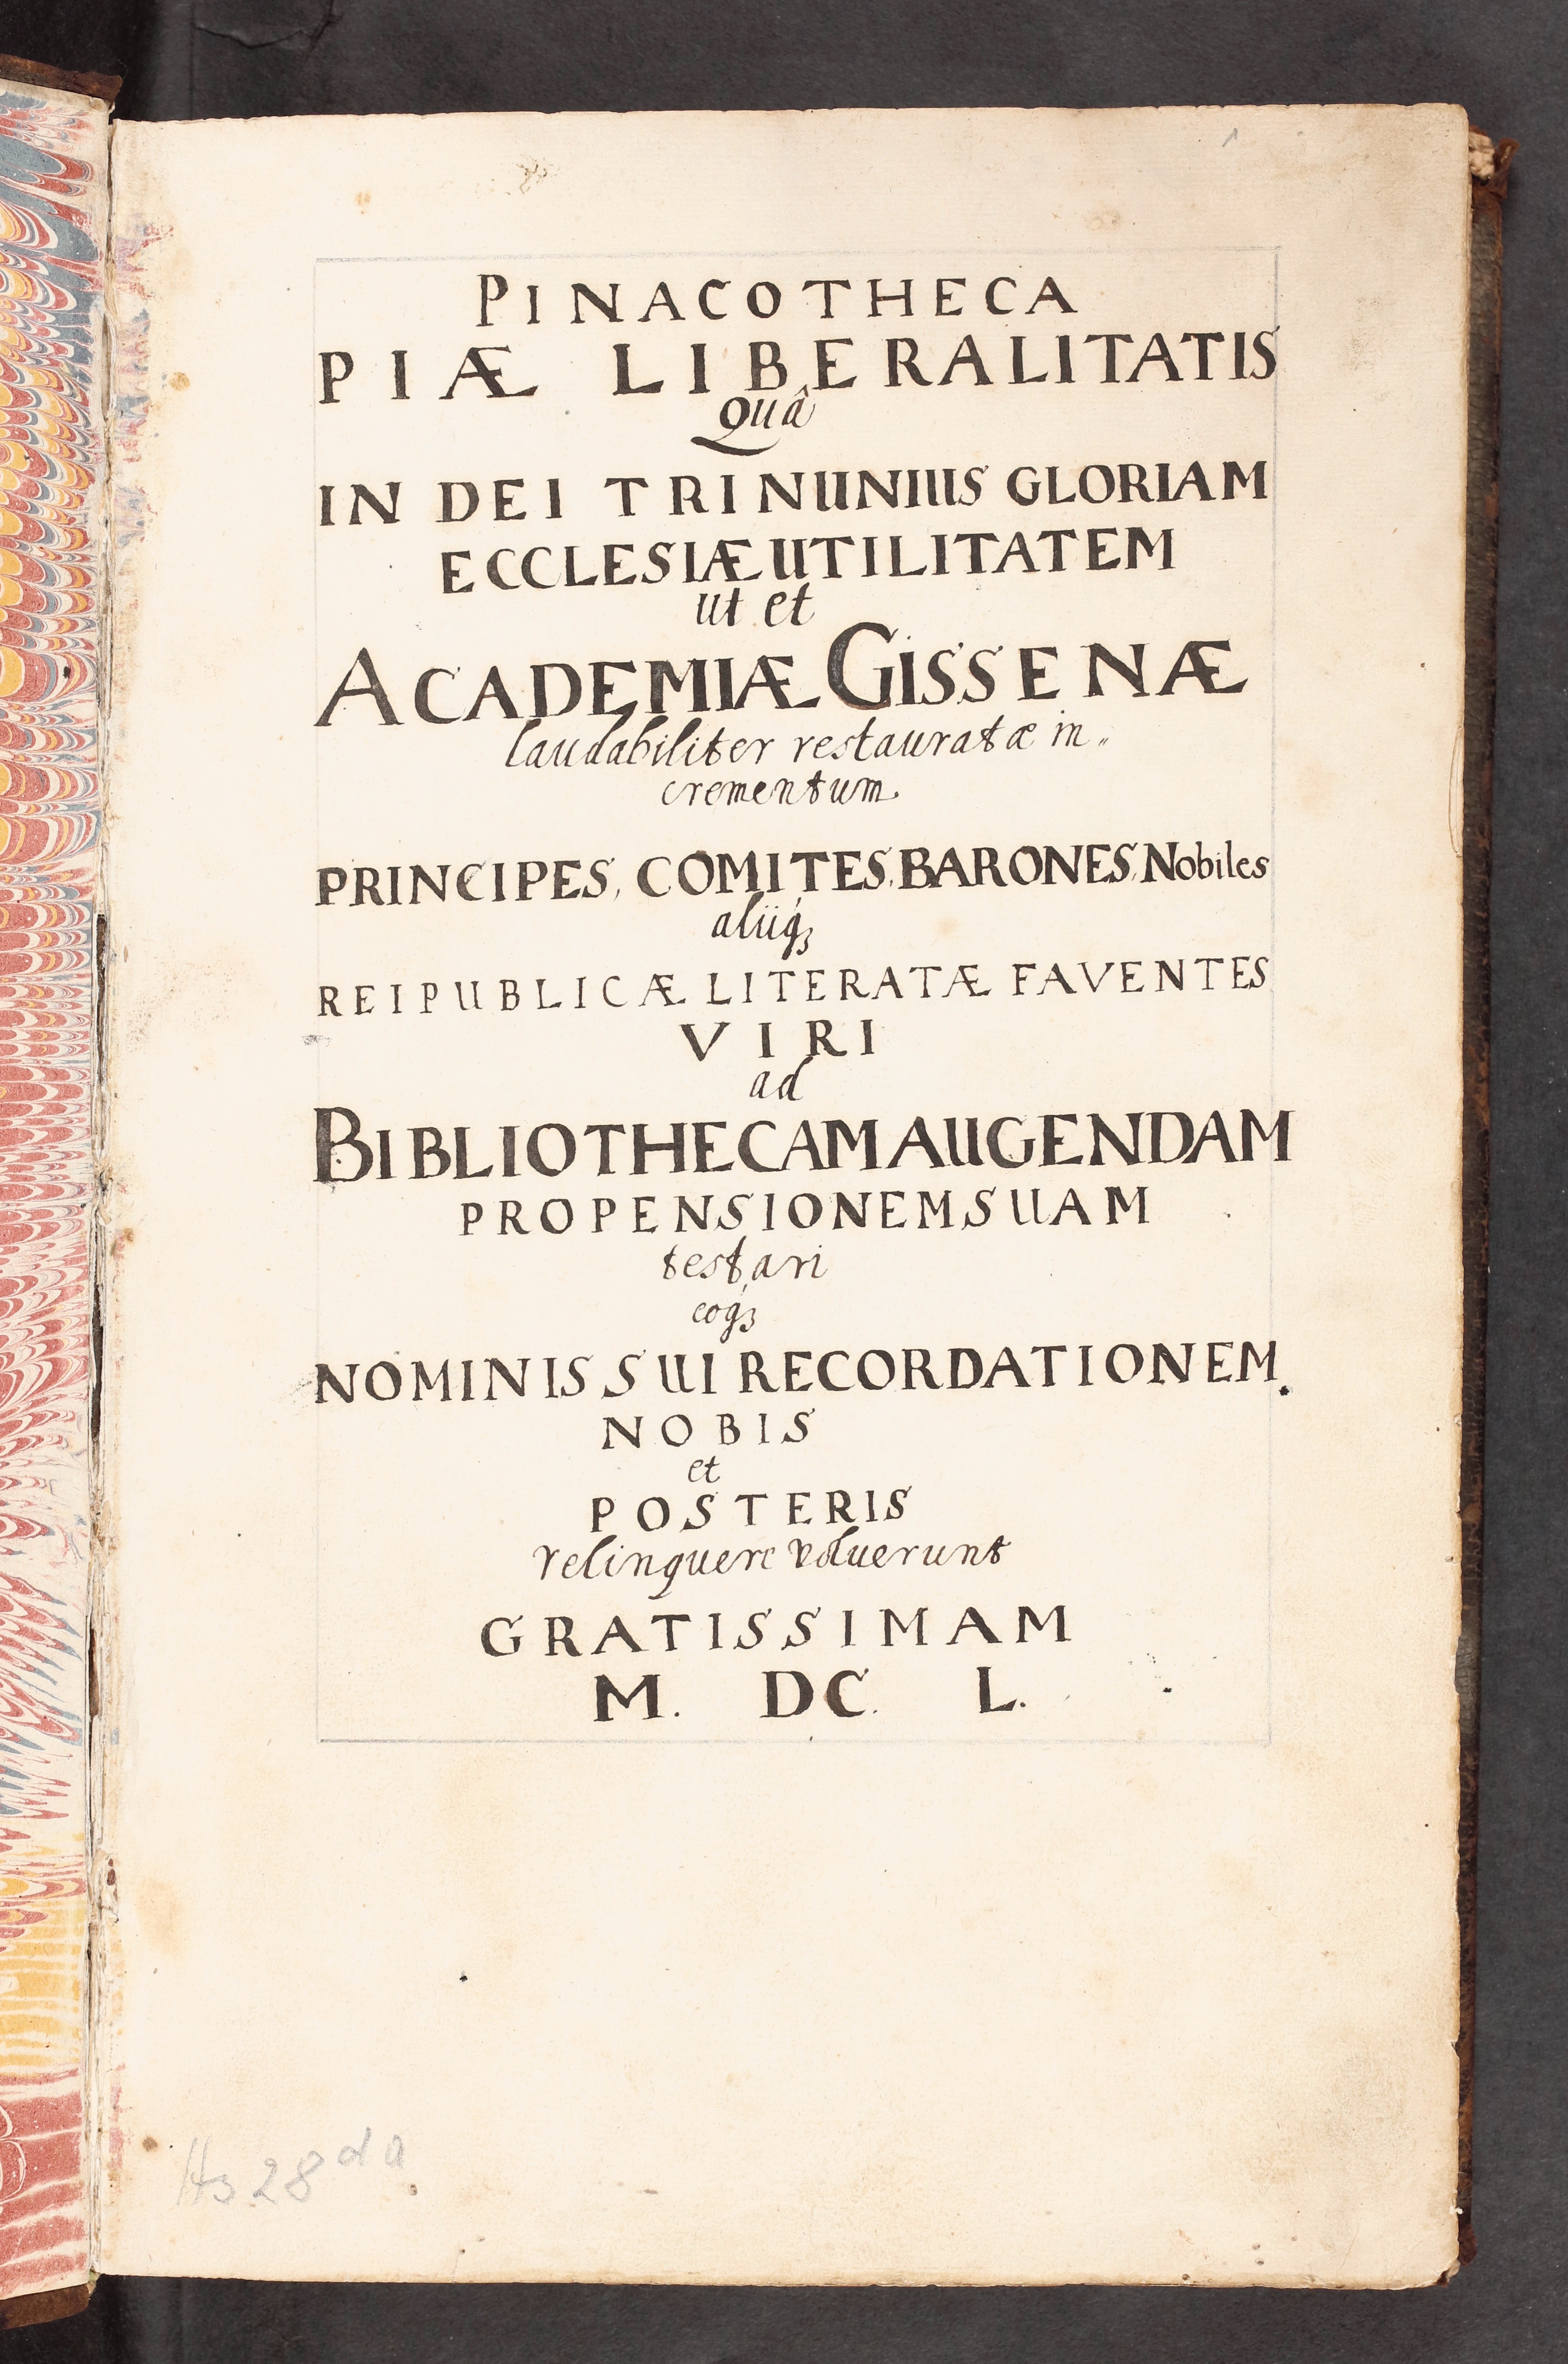 1
PINACOTHECA
PIÆ LIBERALITATIS
Quâ
IN DEI TRINUNIUS GLORIAM
ECCLESIÆ UTILITATEM
ut et
ACADEMIÆ GISSENÆ
laudabiliter restauratæ in„
crementum
PRINCIPES, COMITES, BARONES, Nobiles
alijq́ꝫ
REIPUBLICÆ LITERATÆ FAVENTES
VIRI
ad
BIBLIOTHECAM AUGENDAM
PROPENSIONEM SUAM
testari
eoq́ꝫ
NOMINIS SUI RECORDATIONEM
NOBIS
et
POSTERIS
relinquere voluerunt
GRATISSIMAM
M. DC. L.
Hs 28 da